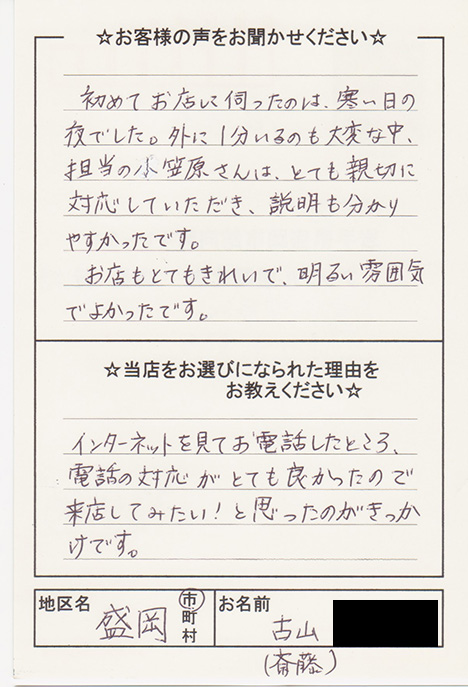 ☆お客様の声をお聞かせください☆
初めてお店に伺ったのは、寒い日の
夜でした。外に1分いるのも大変な中、
担当の小笠原さんは、とても親切に
対応していただき、説明も分かり
やすかったです。
お店もとてもきれいで、明るい雰囲気
でよかったです。
☆当店をお選びになられた理由を
お教えください☆
インターネットを見てお電話したところ、
電話の対応がとても良かったので
来店してみたい!と思ったのがきっか
けです。
地区名 盛岡 市 町 村 お名前 古山
(斎藤)